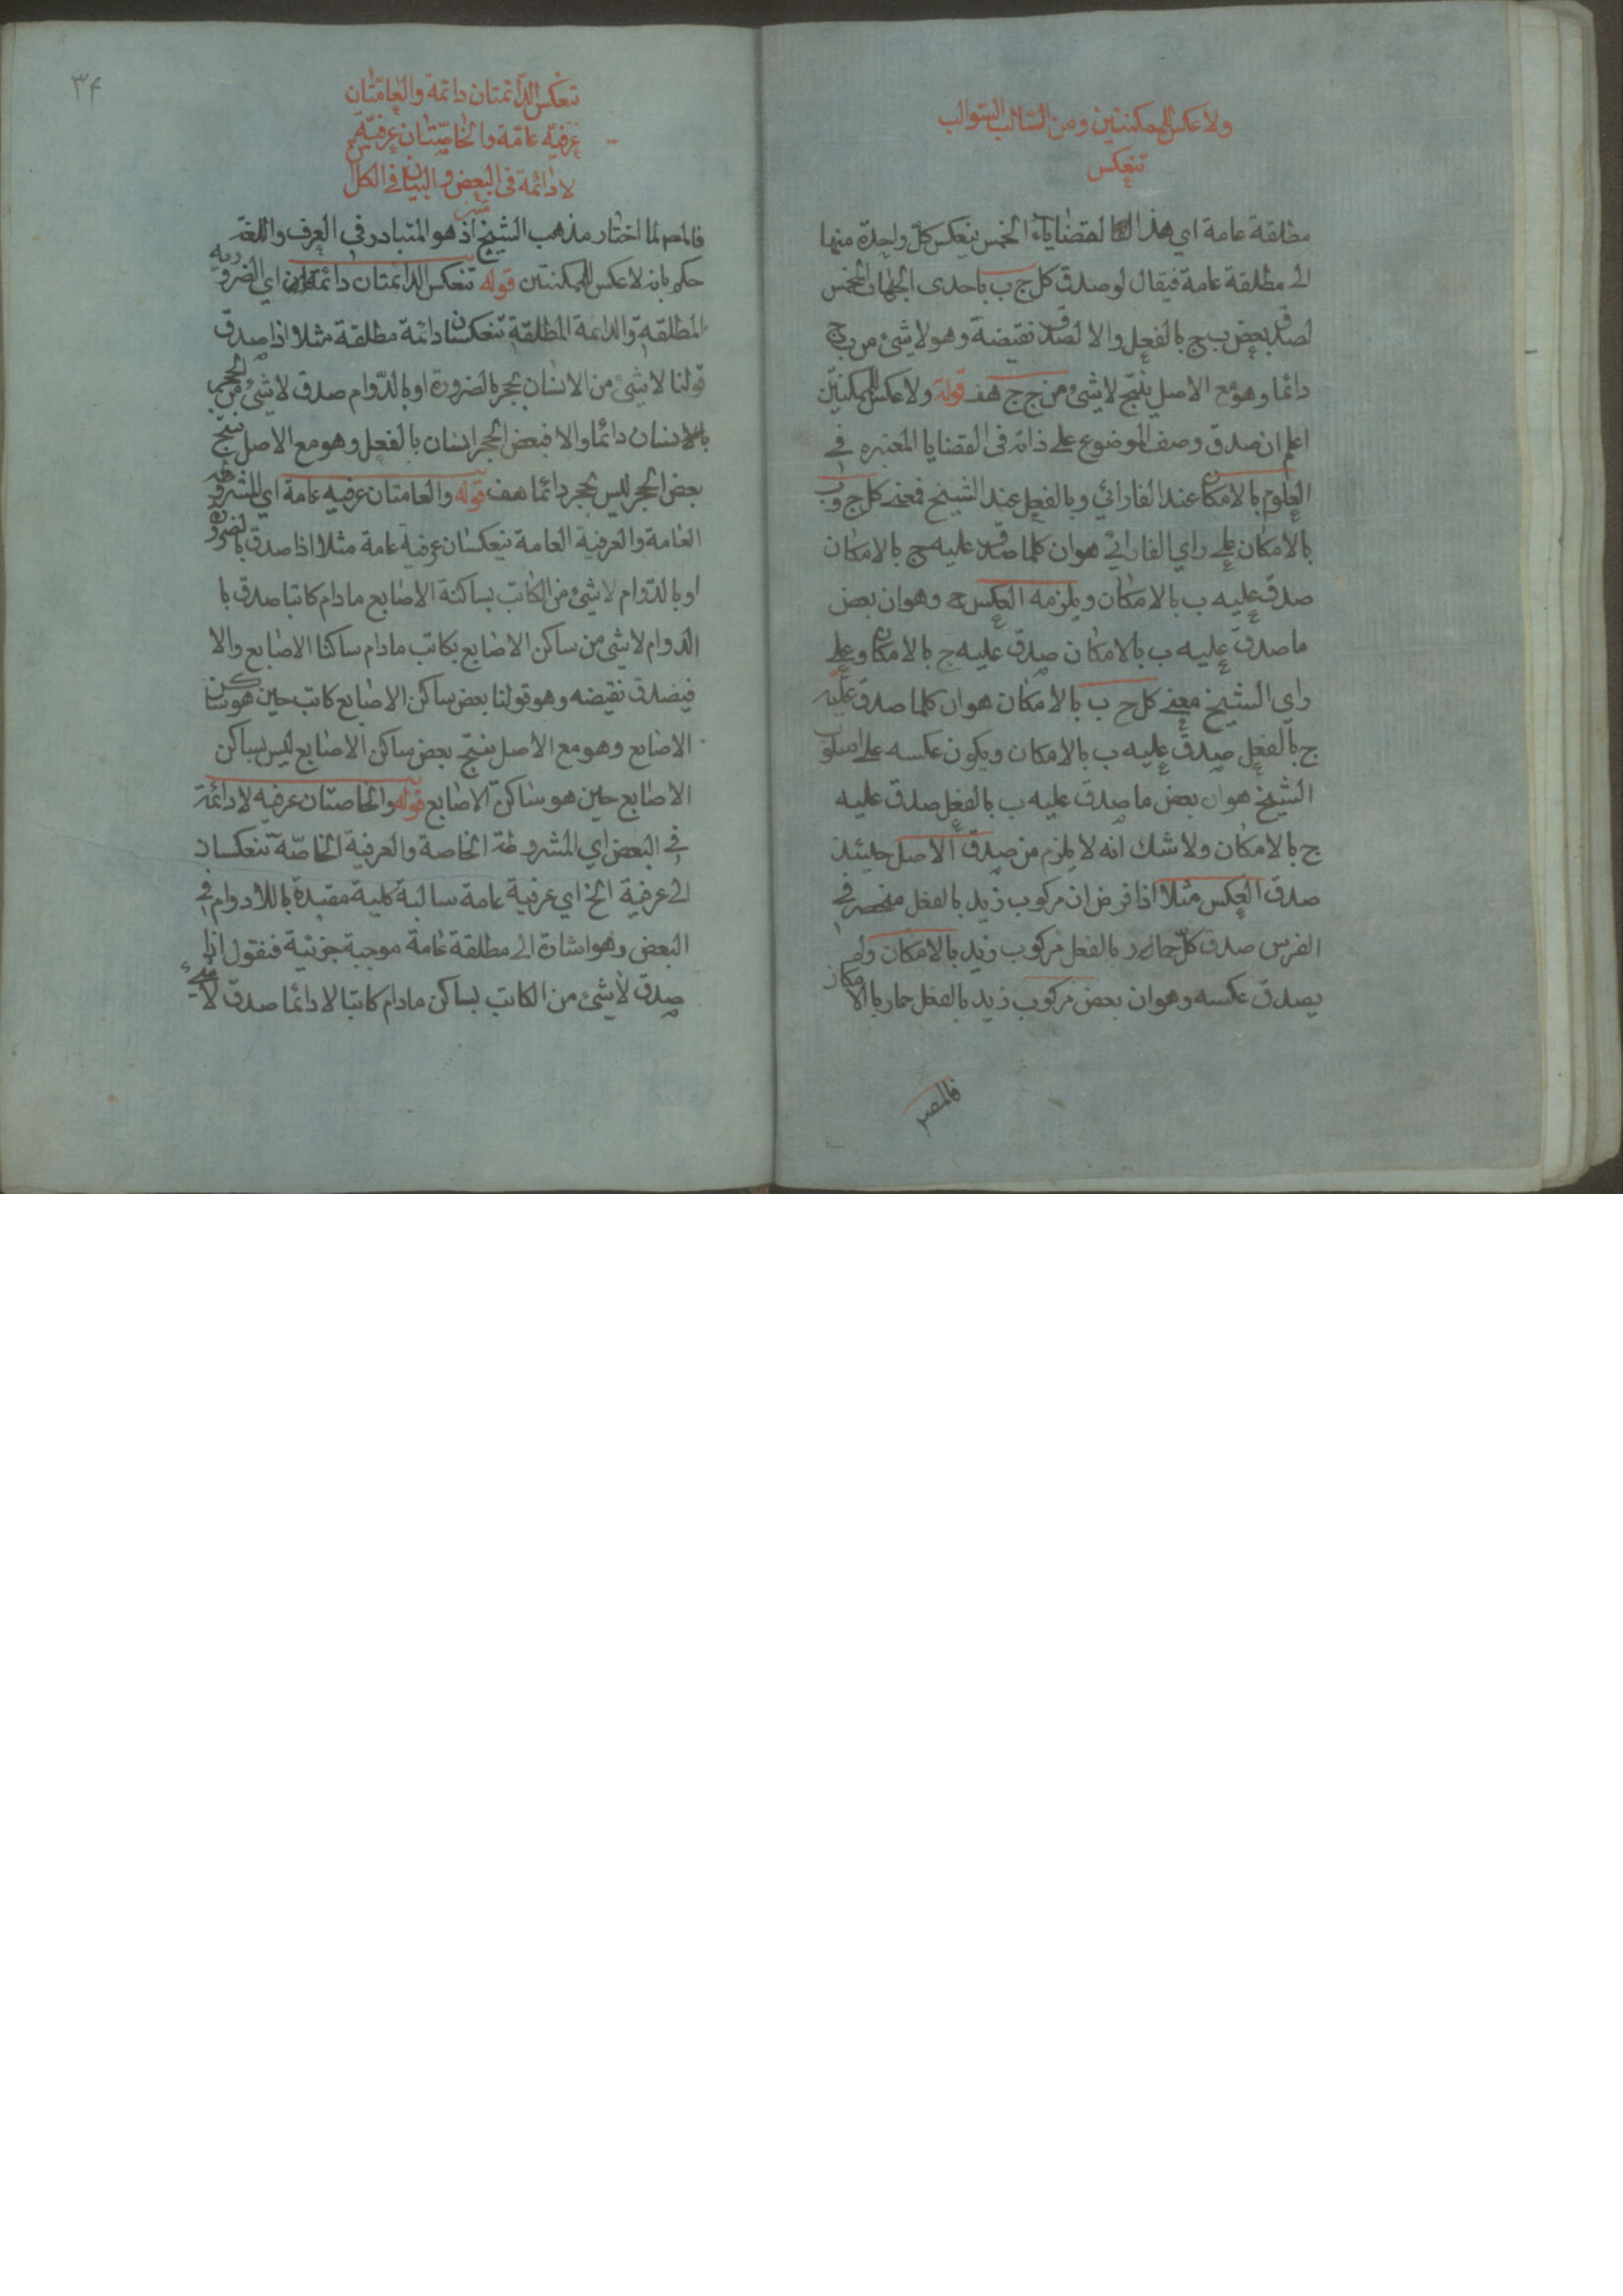 ولا عكس للممكنتين ومن السالب السوالب
تنعكس
مطلقة عامة اي هذه القضايا الخمس ينعكس كل واحدة منها
الى مطلقة عامة فيقال لو صدق كل ج ب باحدى الجهات الخمس
لصدق بعض ب ج بالفعل والا لصدق نقيضة وهو لا شئ من ب ج
دائما وهو مع الاصل ينتج لا شئ من ج ج هف قوله ولا عكس للممكنتين
اعلم ان صدق وصف الموضوع على ذاته فى القضايا المعتبره في
العلوم بالامكان عند الفارابي وبالفعل عند الشيخ فمعنى كل ج ب
بالامكان على راي الفارابي هو ان كلما صدق عليه ج بالامكان
صدق عليه ب بالامكان ويلزمه العكس ح وهو ان بعض
ما صدق عليه ب بالامكان صدق عليه ج بالامكان وعلى
راي الشيخ معنى كل ج ب بالامكان هو ان كلما صدق عليه
ج بالفعل صدق عليه ب بالامكان ويكون عكسه على اسلوب
الشيخ هو ان بعض ما صدق عليه ب بالفعل صدق عليه
ج بالامكان ولا شك انه لا يلزم من صدق الاصل حينئذ
صدق العكس مثلا اذا فرض ان مركوب زيد بالفعل منحصر في
الفرس صدق كل حمار بالفعل مركوب زيد بالامكان ولم
يصدق عكسه وهو ان بعض مركوب زيد بالفعل حمار بالامكان
فالمصر
٣٤
تنعكس الدائمتان دائمة والعامتان
عرفية عامة والخاصتان عرفية
لا دائمة فى البعض والبيان في الكل
فالمص لما اختار مذهب الشيخ اذ هو المتبادر في العرف واللغة
حكم بانه لا عكس للممكنتين قوله تنعكس الدائمتان دائمة اي الضرورية
المطلقة والدايمة المطلقة تنعكسان دائمة مطلقة مثلا اذا صدق
قولنا لا شئ من الانسان بحجر بالضرورة او بالدوام صدق لا شئ من الحجر
بالانسان دائما والا فبعض الحجر انسان بالفعل وهو مع الاصل ينتج
بعض الحجر ليس بحجر دائما هف قوله والعامتان عرفيه عامة اي المشروطة
العامة والعرفية العامة تنعكسان عرفية عامة مثلا اذا صدق بالضرورة
او بالدوام لا شئ من الكاتب بساكنة الاصابع ما دام كاتبا صدق با
الدوام لا شئ من ساكن الاصابع بكاتب ما دام ساكنا الاصابع والا
فيصدق نقيضه وهو قولنا بعض ساكن الاصابع كاتب حين هو ساكن
الاصابع وهو مع الاصل ينتج بعض ساكن الاصابع ليس بساكن
الاصابع حين هو ساكن الاصابع قوله والخاصتان عرفيه لا دائمة
في البعض اي المشروطة الخاصة والعرفية الخاصة تنعكسان
الى عرفية الخ اي عرفية عامة سالبة كلية مقيدة باللادوام في
البعض وهو اشارة الى مطلقة عامة موجبة جزئية فنقول اذا
صدق لا شئ من الكاتب بساكن مادام كاتبا لا دائما صدق لا شئ